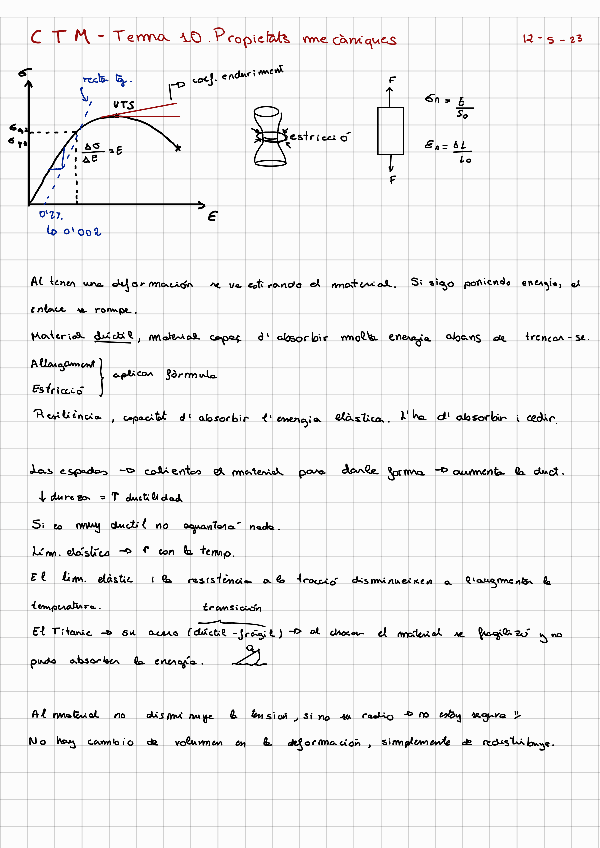 CTM - Tema 10. Propietats mecàniques
12-5-23
σ
recta tg.
coef. enduriment
UTS
Δσ/ΔE = E
0'2%
↳ 0'002
E
estricció
F
F
σn = F/S0
En = ΔL/L0
Al tener una deformación se va estirando el material. Si sigo poniendo energia, el
enlace se rompe.
Material dúctil, material capaç d'absorbir molta energia abans de trencar-se.
Allargament
Estricció
aplicar fórmula
Resiliència, capacitat d'absorbir l'energia elàstica. L'ha d'absorbir i cedir.
Las espadas → calientas el material para darle forma → aumenta la duct.
↓ dureza = ↑ ductilidad
Si es muy ductil no aguantará nada.
Lím. elástico → con la temp.
El lim. elàstic i la resistència a la tracció disminueixen a l'augmentar la
temperatura.
transición
El Titanic → su acero (dúctil-frágil) → al chocar el material se fragilizó y no
pudo absorber la energía.
Al material no disminuye la tension, si no su radio → no estoy segura !!
No hay cambio de volumen en la deformación, simplemente se redistribuye.